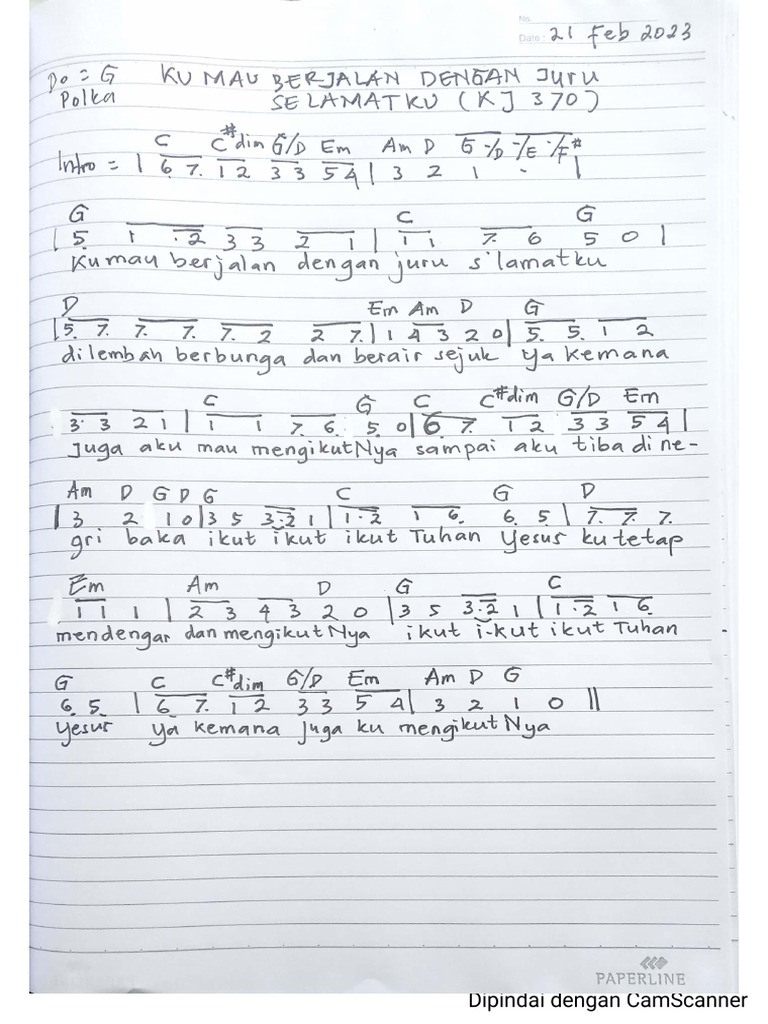 No.
Date: 21 Feb 2023
Do = G KU MAU BERJALAN DENGAN JURU
Polka SELAMATKU (KJ 370)
C C#dim G/D Em Am D G ·/D ·/E ·/F#
Intro = | 6 7. 1 2 3 3 5 4 | 3 2 1 . |
G C G
| 5. 1 .2 3 3 2 1 | 1 1 7. 6. 5. 0 |
Ku mau berjalan dengan juru s'lamatku
D Em Am D G
| 5. 7. 7. 7. 7. 2 2 7. | 1 4 3 2 0 | 5. 5. 1 2
dilembah berbunga dan berair sejuk ya kemana
C G C C#dim G/D Em
3. 3 2 1 | 1 1 7. 6. 5. 0 | 6. 7. 1 2 3 3 5 4 |
Juga aku mau mengikutNya sampai aku tiba di ne-
Am D G D G C G D
| 3 2 1 0 | 3 5 3.2 1 | 1.2 1 6. 6. 5. | 7. 7. 7.
gri baka ikut ikut ikut Tuhan Yesus ku tetap
Em Am D G C
1 1 1 | 2 3 4 3 2 0 | 3 5 3.2 1 | 1.2 1 6.
mendengar dan mengikutNya ikut i-kut ikut Tuhan
G C C#dim G/D Em Am D G
6. 5. | 6. 7. 1 2 3 3 5 4 | 3 2 1 0 ||
Yesus ya kemana juga ku mengikutNya
PAPERLINE
Dipindai dengan CamScanner